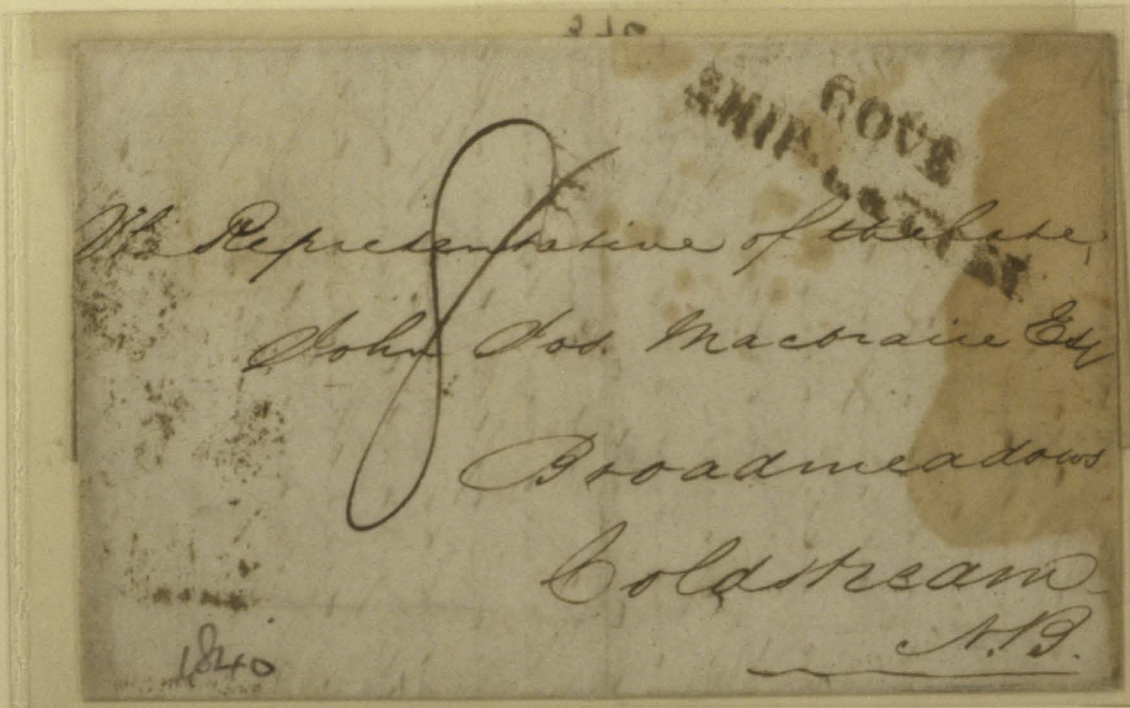 COVE
SHIP LETTER
8
The Representative of the late
John Jos. Macbraire Esq
Broadmeadows
Coldstream
N.B.
1840